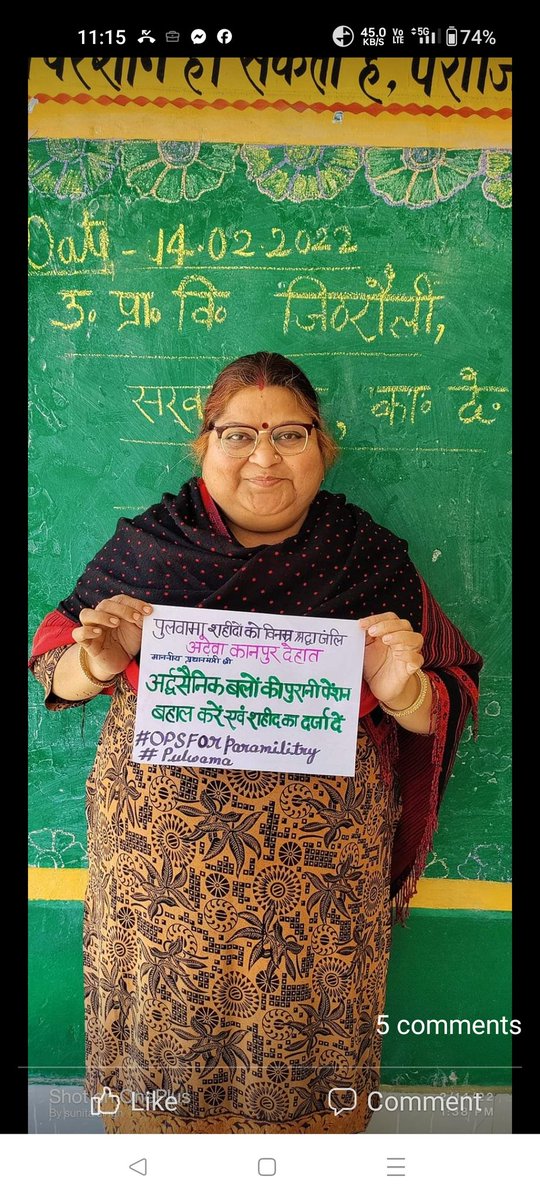 11:15
45.0 KB/S
Vo LTE
5G
74%
परेशान हो सकता है, पराजि
Date - 14.02.2022
उ॰ प्रा॰ वि॰ जिठरौली,
सरव , का॰ दे॰
पुलवामा शहीदों को विनम्र श्रद्धांजलि
अटेवा कानपुर देहात
माननीय प्रधानमंत्री जी
अर्द्धसैनिक बलों की पुरानी पेंशन
बहाल करें एवं शहीद का दर्जा दें
#OPSFOR Paramilitry
# Pulwama
5 comments
Shot on OnePlus
Like
Comment